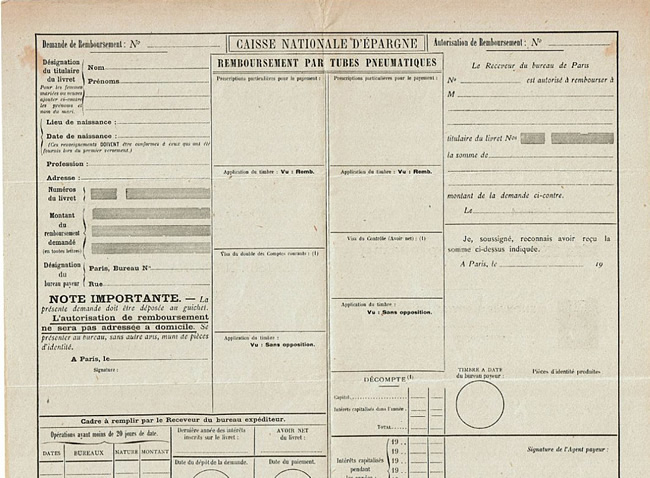 Demande de Remboursement : No
CAISSE NATIONALE D'ÉPARGNE
Autorisation de Remboursement : No
REMBOURSEMENT PAR TUBES PNEUMATIQUES
Désignation
du titulaire
du livret
Pour les femmes
mariées ou veuves
ajouter ci-contre
les prénoms et
nom du mari.
Nom
Prénoms
Lieu de naissance :
Date de naissance :
(Ces renseignements DOIVENT être conformes à ceux qui ont été
fournis lors du premier versement.)
Profession :
Adresse :
Numéros
du livret
Montant
du
remboursement
demandé
(en toutes lettres)
Désignation
du
bureau payeur
Paris, Bureau No
Rue
NOTE IMPORTANTE. — La
présente demande doit être déposée au guichet.
L'autorisation de remboursement
ne sera pas adressée à domicile. Se
présenter au bureau, sans autre avis, muni de pièces
d'identité.
A Paris, le
Signature :
Prescriptions particulières pour le payement :
Application du timbre : Vu : Remb.
Visa du double des Comptes courants : (1)
Application du timbre :
Vu : Sans opposition.
Prescriptions particulières pour le payement :
Application du timbre : Vu : Remb.
Visa du Contrôle (Avoir net) : (1)
Application du timbre :
Vu : Sans opposition.
DÉCOMPTE (1)
Capital
Intérêts capitalisés dans l'année :
TOTAL
Le Receveur du bureau de Paris
No est autorisé à rembourser à
M
titulaire du livret Nos
la somme de
montant de la demande ci-contre.
Le
Je, soussigné, reconnais avoir reçu la
somme ci-dessus indiquée.
A Paris, le 19
TIMBRE A DATE
du bureau payeur :
Pièces d'identité produites
Cadre à remplir par le Receveur du bureau expéditeur.
Opérations ayant moins de 20 jours de date.
DATES BUREAUX NATURE MONTANT
Dernière année des intérêts
inscrits sur le livret :
AVOIR NET
du livret :
Date du dépôt de la demande.
Date du payement.
Intérêts capitalisés
pendant
les années :
19
19
19
19
Signature de l'Agent payeur :